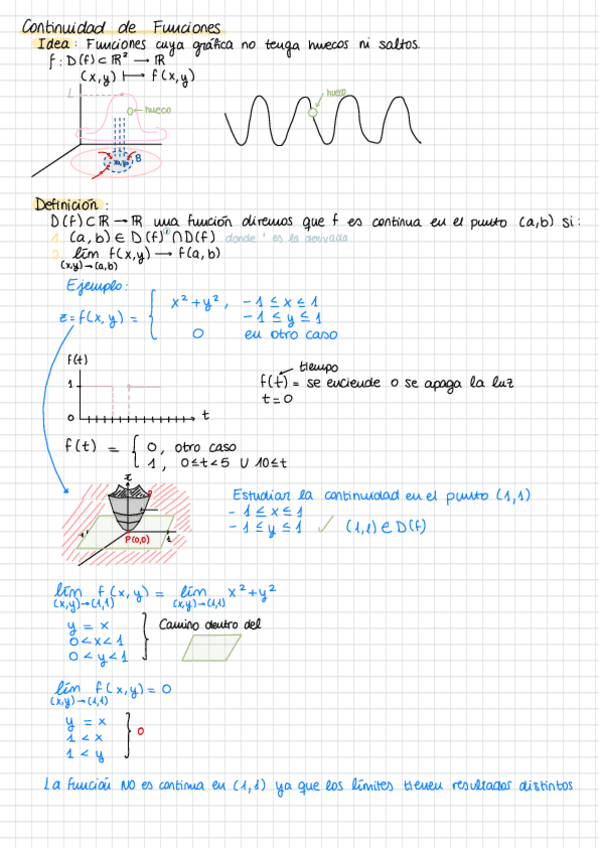 Continuidad de Funciones
Idea: Funciones cuya gráfica no tenga huecos ni saltos.
f: D(f) ⊂ ℝ² → ℝ
(x,y) ⟼ f(x,y)
L
hueco
B
hueco
Definición:
D(f) ⊂ ℝ → ℝ una función diremos que f es continua en el punto (a,b) si:
1. (a,b) ∈ D(f)' ∩ D(f) donde ' es la derivada
2. lím f(x,y) → f(a,b)
(x,y)→(a,b)
Ejemplo:
z = f(x,y) = { x² + y², -1 ≤ x ≤ 1
-1 ≤ y ≤ 1
0 en otro caso
f(t)
1
0
t
tiempo
f(t) = se enciende o se apaga la luz
t = 0
f(t) = { 0, otro caso
1, 0 ≤ t < 5 ∪ 10 ≤ t
P(0,0)
1
Estudiar la continuidad en el punto (1,1)
- 1 ≤ x ≤ 1
- 1 ≤ y ≤ 1 ✓ (1,1) ∈ D(f)
lím f(x,y) = lím x² + y²
(x,y)→(1,1) (x,y)→(1,1)
y = x
0 < x < 1
0 < y < 1
} Camino dentro del
lím f(x,y) = 0
(x,y)→(1,1)
y = x
1 < x
1 < y
} 0
La función NO es continua en (1,1) ya que los límites tienen resultados distintos